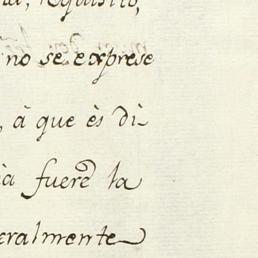 requisito,
no se exprese
à que ès di-
fuere la
eralmente